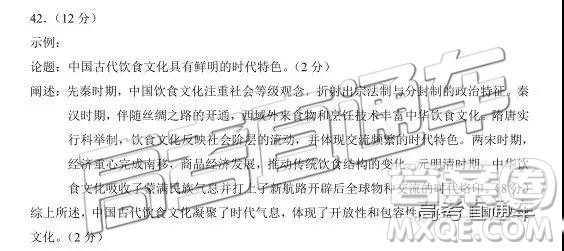 42．（12 分）
示例：
论题：中国古代饮食文化具有鲜明的时代特色。（2 分）
阐述：先秦时期，中国饮食文化注重社会等级观念，折射出宗法制与分封制的政治特征。秦
汉时期，伴随丝绸之路的开通，西域外来食物和烹饪技术丰富中华饮食文化。隋唐实
行科举制，饮食文化反映社会阶层的流动，并体现交流频繁的时代特色。两宋时期，
经济重心完成南移，商品经济发展，推动传统饮食结构的变化。元明清时期，中华饮
食文化吸收了蒙满民族气息并打上了新航路开辟后全球物种交流的时代烙印。（8 分）
综上所述，中国古代饮食文化凝聚了时代气息，体现了开放性和包容性
文化。（2 分）
高考直通车